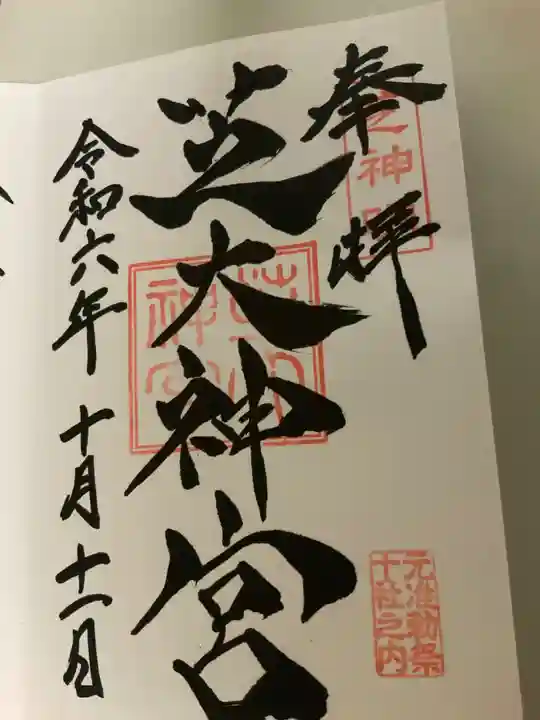 奉拝
芝神明
芝大神宮
芝大神宮
令和六年十月十一日
元准勅祭
十社之内